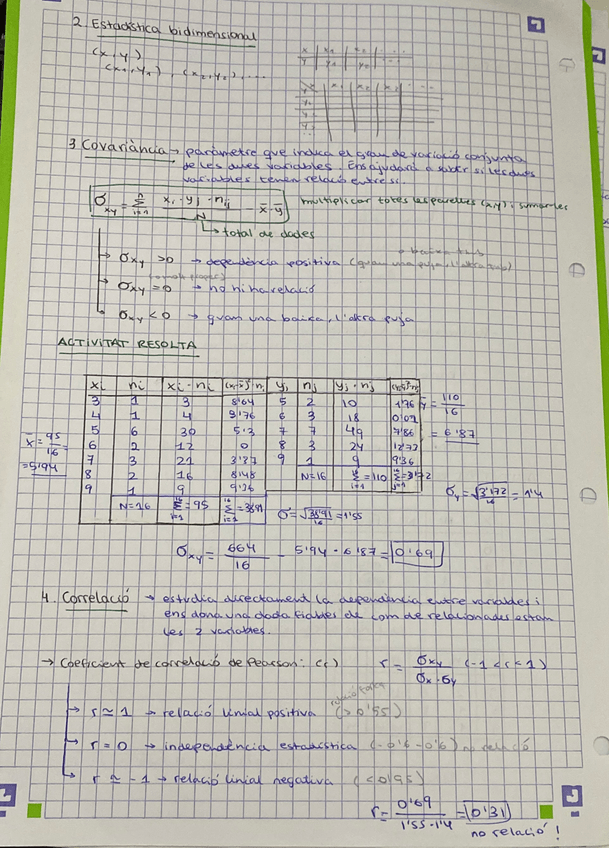 2. Estadística bidimensional
(x, y)
(x₁, y₁), (x₂, y₂), ...
x | x₁ | x₂ | ...
y | y₁ | y₂ | ...
3 Covariància → paràmetre que indica el grau de variació conjunta
de les dues variables. Ens ajudarà a saber si les dues
variables tenen relació entre si.
σxy = Σ i=1 n xi · yj · nij / N - x̄ · ȳ multiplicar totes les parelles (x,y) i sumar-les
→ total de dades
→ σxy > 0 → dependència positiva (quan una puja, l'altra tmb)
o baixa tmb
→ σxy = 0 → no hi ha relació
→ σxy < 0 → quan una baixa, l'altra puja
ACTIVITAT RESOLTA
xi | ni | xi · ni | (xi-x̄)²·ni | yj | nj | yj · nj
3 | 1 | 3 | 8'64 | 5 | 2 | 10
4 | 1 | 4 | 3'76 | 6 | 3 | 18 | 0'02
5 | 6 | 30 | 5'3 | 7 | 7 | 49
6 | 2 | 12 | 0 | 8 | 3 | 24
7 | 3 | 21 | 3'37 | 9 | 1 | 9
8 | 2 | 16 | 8'48
9 | 1 | 9 | 9'36
N=16 | Σ i=1 16 = 95
N=16 | Σ i=1 16 = 110
x̄ = 95/16
= 5'94
ȳ = 110/16
= 6'87
= 1'55
= 1'4
σxy = 664/16 - 5'94 · 6'87 = 0'69
4. Correlació → estudia directament la dependència entre variables i
ens dona una dada fiable de com de relacionades estan
les 2 variables.
→ Coeficient de correlació de Pearson: (r) r = σxy / σx · σy (-1 < r < 1)
→ r ≃ 1 → relació linial positiva (>0'55)
→ r = 0 → independència estadística (-0'6 - 0'6) no relació
→ r ≃ -1 → relació linial negativa
r = 0'69 / 1'55 · 1'4 = 0'31
no relació!